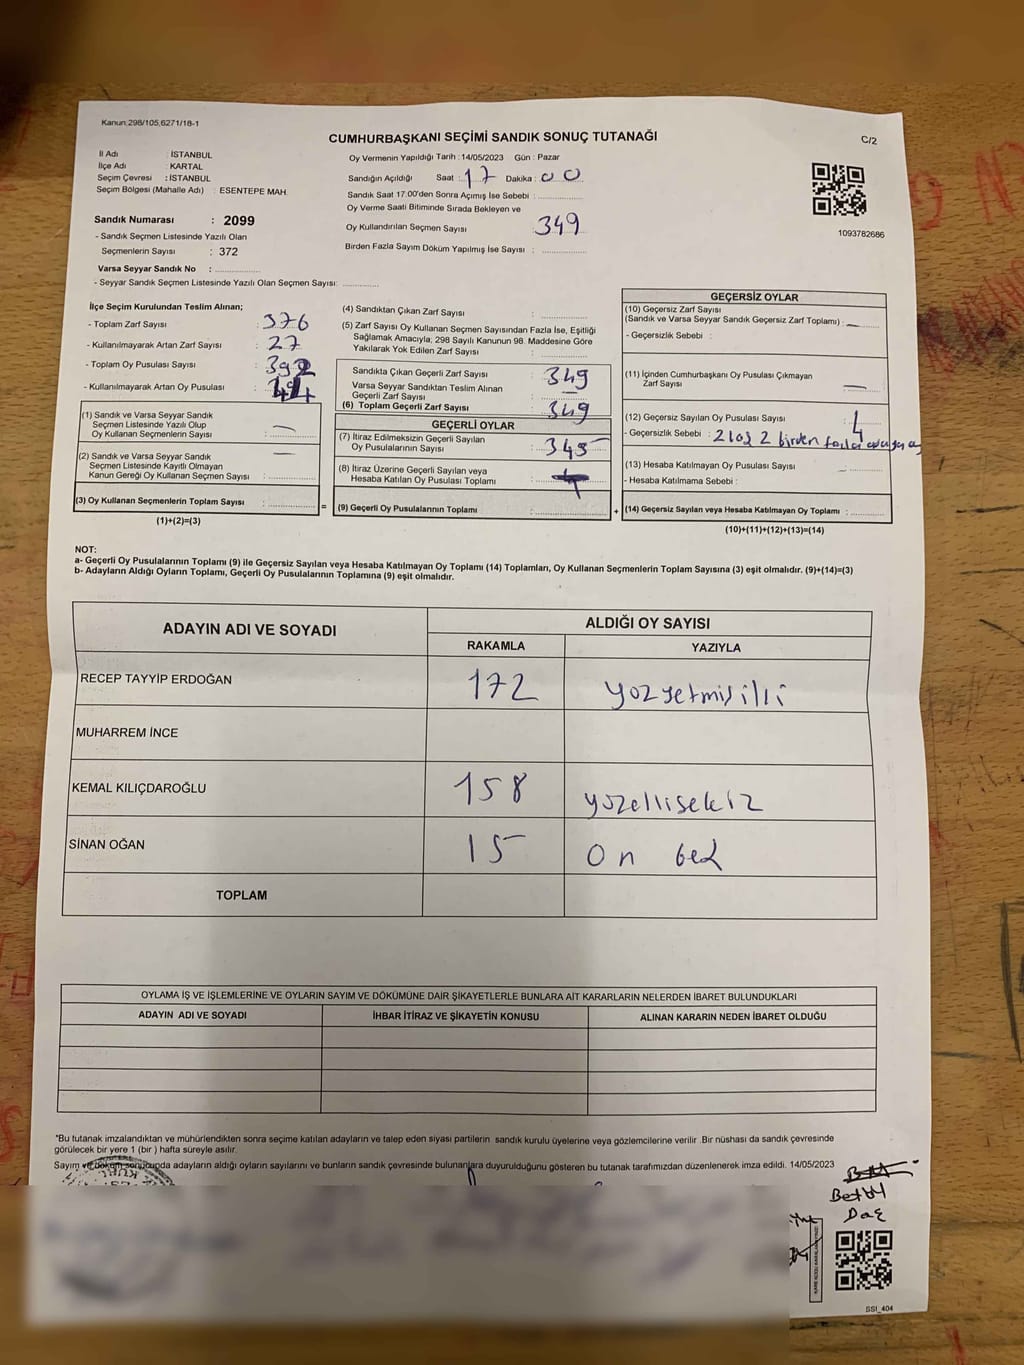 Kanun,298/105,6271/18-1
CUMHURBAŞKANI SEÇİMİ SANDIK SONUÇ TUTANAĞI
C/2
İl Adı : İSTANBUL
İlçe Adı : KARTAL
Seçim Çevresi : İSTANBUL
Seçim Bölgesi (Mahalle Adı) : ESENTEPE MAH.
Sandık Numarası : 2099
- Sandık Seçmen Listesinde Yazılı Olan
Seçmenlerin Sayısı : 372
Varsa Seyyar Sandık No : ................
- Seyyar Sandık Seçmen Listesinde Yazılı Olan Seçmen Sayısı: .............
Oy Vermenin Yapıldığı Tarih : 14/05/2023 Gün : Pazar
Sandığın Açıldığı Saat : 17 Dakika : 00
Sandık Saat 17.00'den Sonra Açımış İse Sebebi : ................
Oy Verme Saati Bitiminde Sırada Bekleyen ve
Oy Kullandırılan Seçmen Sayısı 349
Birden Fazla Sayım Döküm Yapılmış İse Sayısı : ................
1093782686
İlçe Seçim Kurulundan Teslim Alınan;
- Toplam Zarf Sayısı : 376
- Kullanılmayarak Artan Zarf Sayısı : 27
- Toplam Oy Pusulası Sayısı : 392
- Kullanılmayarak Artan Oy Pusulası :
(1) Sandık ve Varsa Seyyar Sandık
Seçmen Listesinde Yazılı Olup
Oy Kullanan Seçmenlerin Sayısı : —
(2) Sandık ve Varsa Seyyar Sandık
Seçmen Listesinde Kayıtlı Olmayan
Kanun Gereği Oy Kullanan Seçmen Sayısı : —
(3) Oy Kullanan Seçmenlerin Toplam Sayısı : ............... =
(1)+(2)=(3)
(4) Sandıktan Çıkan Zarf Sayısı : ................
(5) Zarf Sayısı Oy Kullanan Seçmen Sayısından Fazla İse, Eşitliği
Sağlamak Amacıyla; 298 Sayılı Kanunun 98. Maddesine Göre
Yakılarak Yok Edilen Zarf Sayısı : ................
Sandıkta Çıkan Geçerli Zarf Sayısı : 349
Varsa Seyyar Sandıktan Teslim Alınan
Geçerli Zarf Sayısı : —
(6) Toplam Geçerli Zarf Sayısı : 349
GEÇERLİ OYLAR
(7) İtiraz Edilmeksizin Geçerli Sayılan
Oy Pusulalarının Sayısı : 345
(8) İtiraz Üzerine Geçerli Sayılan veya
Hesaba Katılan Oy Pusulası Toplamı :
(9) Geçerli Oy Pusulalarının Toplamı : ................ +
GEÇERSİZ OYLAR
(10) Geçersiz Zarf Sayısı
(Sandık ve Varsa Seyyar Sandık Geçersiz Zarf Toplamı) : —
- Geçersizlik Sebebi :
(11) İçinden Cumhurbaşkanı Oy Pusulası Çıkmayan
Zarf Sayısı —
(12) Geçersiz Sayılan Oy Pusulası Sayısı : 4
- Geçersizlik Sebebi : 2 boş 2 birden fazla
(13) Hesaba Katılmayan Oy Pusulası Sayısı : ................
- Hesaba Katılmama Sebebi :
(14) Geçersiz Sayılan veya Hesaba Katılmayan Oy Toplamı : .............
(10)+(11)+(12)+(13)=(14)
NOT:
a- Geçerli Oy Pusulalarının Toplamı (9) ile Geçersiz Sayılan veya Hesaba Katılmayan Oy Toplamı (14) Toplamları, Oy Kullanan Seçmenlerin Toplam Sayısına (3) eşit olmalıdır. (9)+(14)=(3)
b- Adayların Aldığı Oyların Toplamı, Geçerli Oy Pusulalarının Toplamına (9) eşit olmalıdır.
ADAYIN ADI VE SOYADI ALDIĞI OY SAYISI
RAKAMLA YAZIYLA
RECEP TAYYİP ERDOĞAN 172 yüzyetmişikki
MUHARREM İNCE
KEMAL KILIÇDAROĞLU 158 yüzellisekiz
SİNAN OĞAN 15 on beş
TOPLAM
OYLAMA İŞ VE İŞLEMLERİNE VE OYLARIN SAYIM VE DÖKÜMÜNE DAİR ŞİKAYETLERLE BUNLARA AİT KARARLARIN NELERDEN İBARET BULUNDUKLARI
ADAYIN ADI VE SOYADI İHBAR İTİRAZ VE ŞİKAYETİN KONUSU ALINAN KARARIN NEDEN İBARET OLDUĞU
"Bu tutanak imzalandıktan ve mühürlendikten sonra seçime katılan adayların ve talep eden siyasi partilerin sandık kurulu üyelerine veya gözlemcilerine verilir .Bir nüshası da sandık çevresinde
görülecek bir yere 1 (bir ) hafta süreyle asılır.
Sayım ve döküm sonucunda adayların aldığı oyların sayılarını ve bunların sandık çevresinde bulunanlara duyurulduğunu gösteren bu tutanak tarafımızdan düzenlenerek imza edildi. 14/05/2023
BSI_404